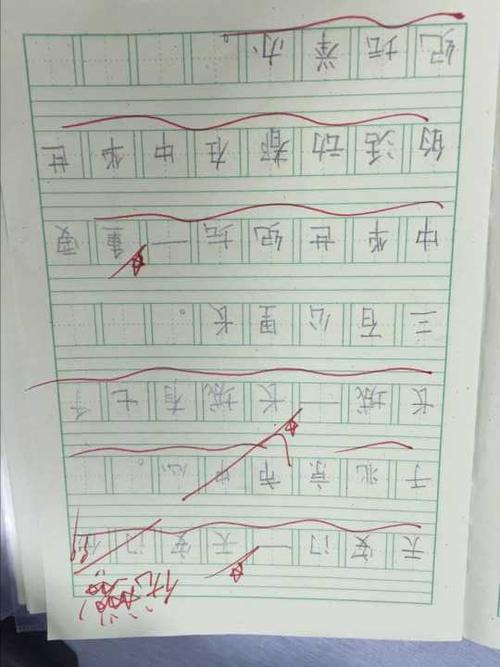 天安门—天安门位
于北京市中心。
长城—长城有七千
三百公里长。
中华世纪坛—重要
的活动都在中华世
纪坛举办。